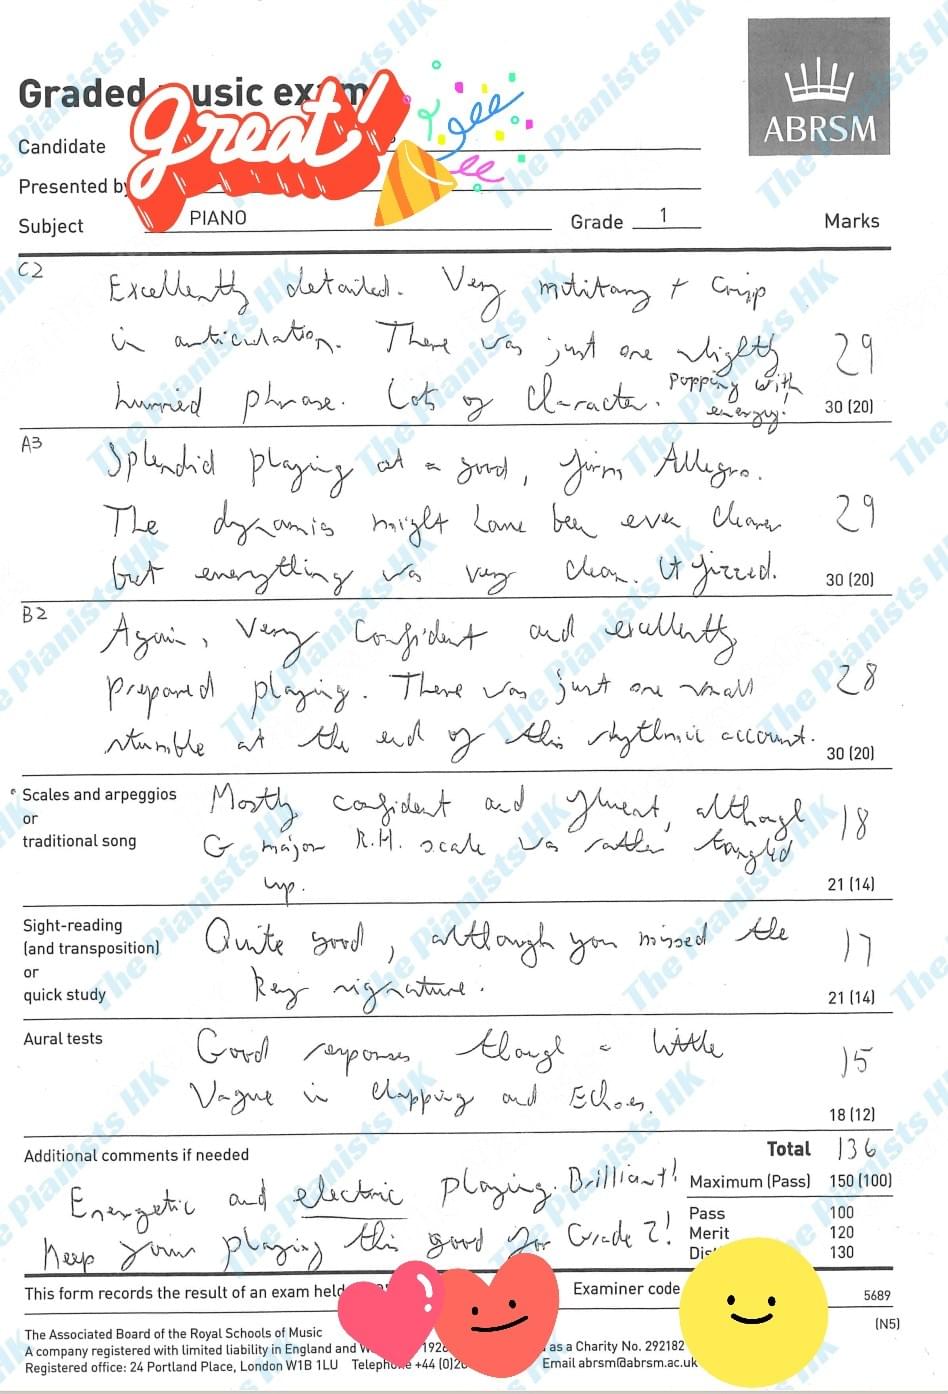 Graded music exam
Great!
ABRSM
Candidate
Presented by
Subject PIANO Grade 1 Marks
C2
Excellently detailed. Very military + Crisp
in articulation. There was just one slightly 29
hurried phrase. Lots of Character. Popping with
energy! 30 (20)
A3
Splendid playing at a good, firm Allegro.
The dynamics might have been even clearer 29
but everything was very clean. It fizzed. 30 (20)
B2
Again, Very Confident and excellently
prepared playing. There was just one small 28
stumble at the end of this rhythmic account. 30 (20)
Scales and arpeggios
or
traditional song
Mostly confident and fluent, although 18
G major R.H. scale was rather tangled
up. 21 (14)
Sight-reading
(and transposition)
or
quick study
Quite good, although you missed the 17
Key signature. 21 (14)
Aural tests
Good responses though a little 15
Vague in Clapping and Echoes. 18 (12)
Additional comments if needed
Total 136
Maximum (Pass) 150 (100)
Pass 100
Merit 120
130
Energetic and electric playing. Brilliant!
Keep your playing this good for Grade 2!
This form records the result of an exam held
Examiner code
5689
(N5)
The Associated Board of the Royal Schools of Music
A company registered with limited liability in England and as a Charity No. 292182
Registered office: 24 Portland Place, London W1B 1LU Telephone +44 (0)20 Email abrsm@abrsm.ac.uk
The Pianists HK